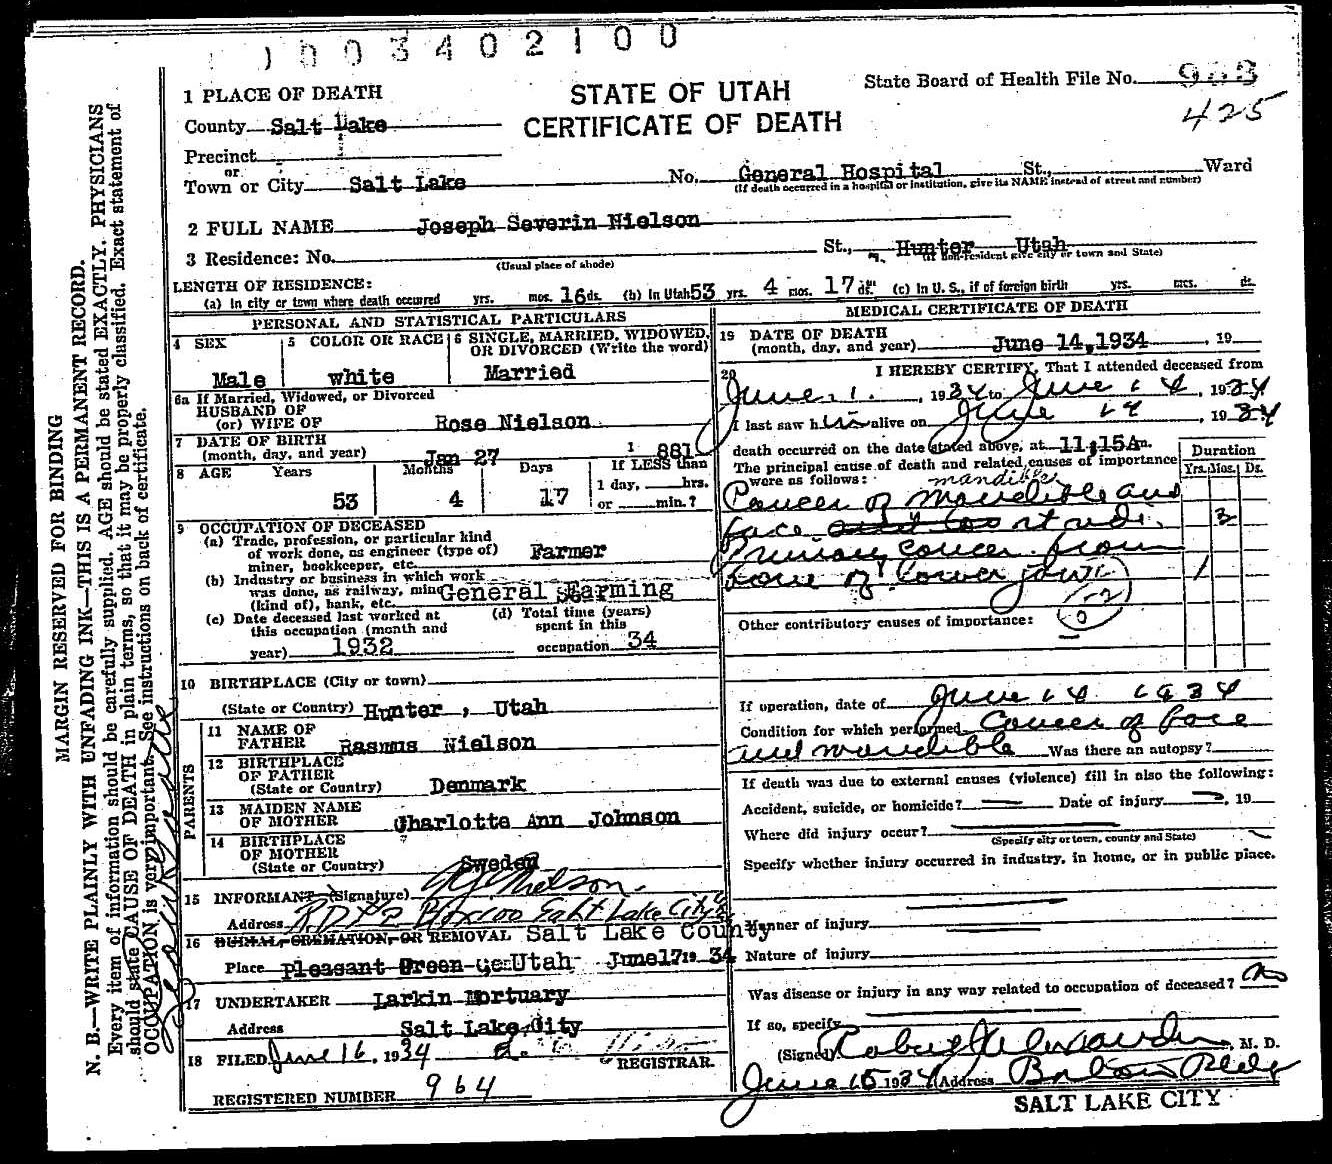 1003402100
STATE OF UTAH
CERTIFICATE OF DEATH
State Board of Health File No. 983
425
1 PLACE OF DEATH
County Salt Lake
Precinct
or
Town or City Salt Lake No. General Hospital St., Ward
(If death occurred in a hospital or institution, give its NAME instead of street and number)
2 FULL NAME Joseph Severin Nielson
3 Residence: No. St., Hunter Utah
(Usual place of abode) (If non-resident give city or town and State)
LENGTH OF RESIDENCE:
(a) In city or town where death occurred yrs. mos. 16 ds. (b) In Utah 53 yrs. 4 mos. 17 ds. (c) In U. S., if of foreign birth yrs. mos. ds.
PERSONAL AND STATISTICAL PARTICULARS
4 SEX
Male
5 COLOR OR RACE
white
6 SINGLE, MARRIED, WIDOWED, OR DIVORCED (Write the word)
Married
6a If Married, Widowed, or Divorced
HUSBAND OF
(or) WIFE OF Rose Nielson
7 DATE OF BIRTH
(month, day, and year) Jan 27 1 881
8 AGE Years Months Days If LESS than
1 day, hrs.
53 4 17 or min.?
9 OCCUPATION OF DECEASED
(a) Trade, profession, or particular kind
of work done, as engineer (type of)
miner, bookkeeper, etc. Farmer
(b) Industry or business in which work
was done, as railway, mine General Farming
(kind of), bank, etc.
(c) Date deceased last worked at
this occupation (month and
year) 1932
(d) Total time (years)
spent in this
occupation 34
10 BIRTHPLACE (City or town)
(State or Country) Hunter, Utah
PARENTS
11 NAME OF
FATHER Rasmus Nielson
12 BIRTHPLACE
OF FATHER
(State or Country) Denmark
13 MAIDEN NAME
OF MOTHER Charlotte Ann Johnson
14 BIRTHPLACE
OF MOTHER
(State or Country) Sweden
15 INFORMANT (Signature) Nielson.
Address R.D. #2 Box 100 Salt Lake City
16 BURIAL, CREMATION, OR REMOVAL Salt Lake County
Place Pleasant Green Ce Utah June 17 19 34
17 UNDERTAKER Larkin Mortuary
Address Salt Lake City
18 FILED June 16, 1934
REGISTRAR.
REGISTERED NUMBER 964
MEDICAL CERTIFICATE OF DEATH
19 DATE OF DEATH
(month, day, and year) June 14, 1934, 19
20 I HEREBY CERTIFY, That I attended deceased from
June 1, 1934 to June 14, 1934
I last saw him alive on June 14, 1934
death occurred on the date stated above, at 11;15A m.
The principal cause of death and related causes of importance
were as follows:
Duration
Yrs. Mos. Ds.
mandible
Cancer of mandible and
face 3
Primary cancer from
bone of lower jaw 1
Other contributory causes of importance:
If operation, date of June 14 1934
Condition for which performed Cancer of face
and mandible Was there an autopsy?
If death was due to external causes (violence) fill in also the following:
Accident, suicide, or homicide? Date of injury , 19
Where did injury occur?
(Specify city or town, county and State)
Specify whether injury occurred in industry, in home, or in public place.
Manner of injury
Nature of injury
Was disease or injury in any way related to occupation of deceased? No
If so, specify
(Signed) M. D.
June 15 1934 Address Boston Bldg
SALT LAKE CITY
MARGIN RESERVED FOR BINDING
N. B.—WRITE PLAINLY WITH UNFADING INK—THIS IS A PERMANENT RECORD.
Every item of information should be carefully supplied. AGE should be stated EXACTLY. PHYSICIANS
should state CAUSE OF DEATH in plain terms, so that it may be properly classified. Exact statement of
OCCUPATION is very important. See instructions on back of certificate.